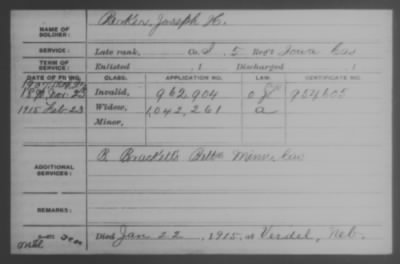 NAME OF SOLDIER: Parker, Joseph H.
SERVICE: Late rank, Co. I, 5 Reg't Iowa Cav
TERM OF SERVICE: Enlisted , 1 Discharged , 1
DATE OF FILING. CLASS. APPLICATION NO. LAW. CERTIFICATE NO.
Invalid, 962,904
1915 Feb-23 Widow, 1,042,261 a
Minor,
ADDITIONAL SERVICES: B Bracketts Batt. Minn. Cav
REMARKS:
Died Jan 22, 1915, at Verdel, Neb.